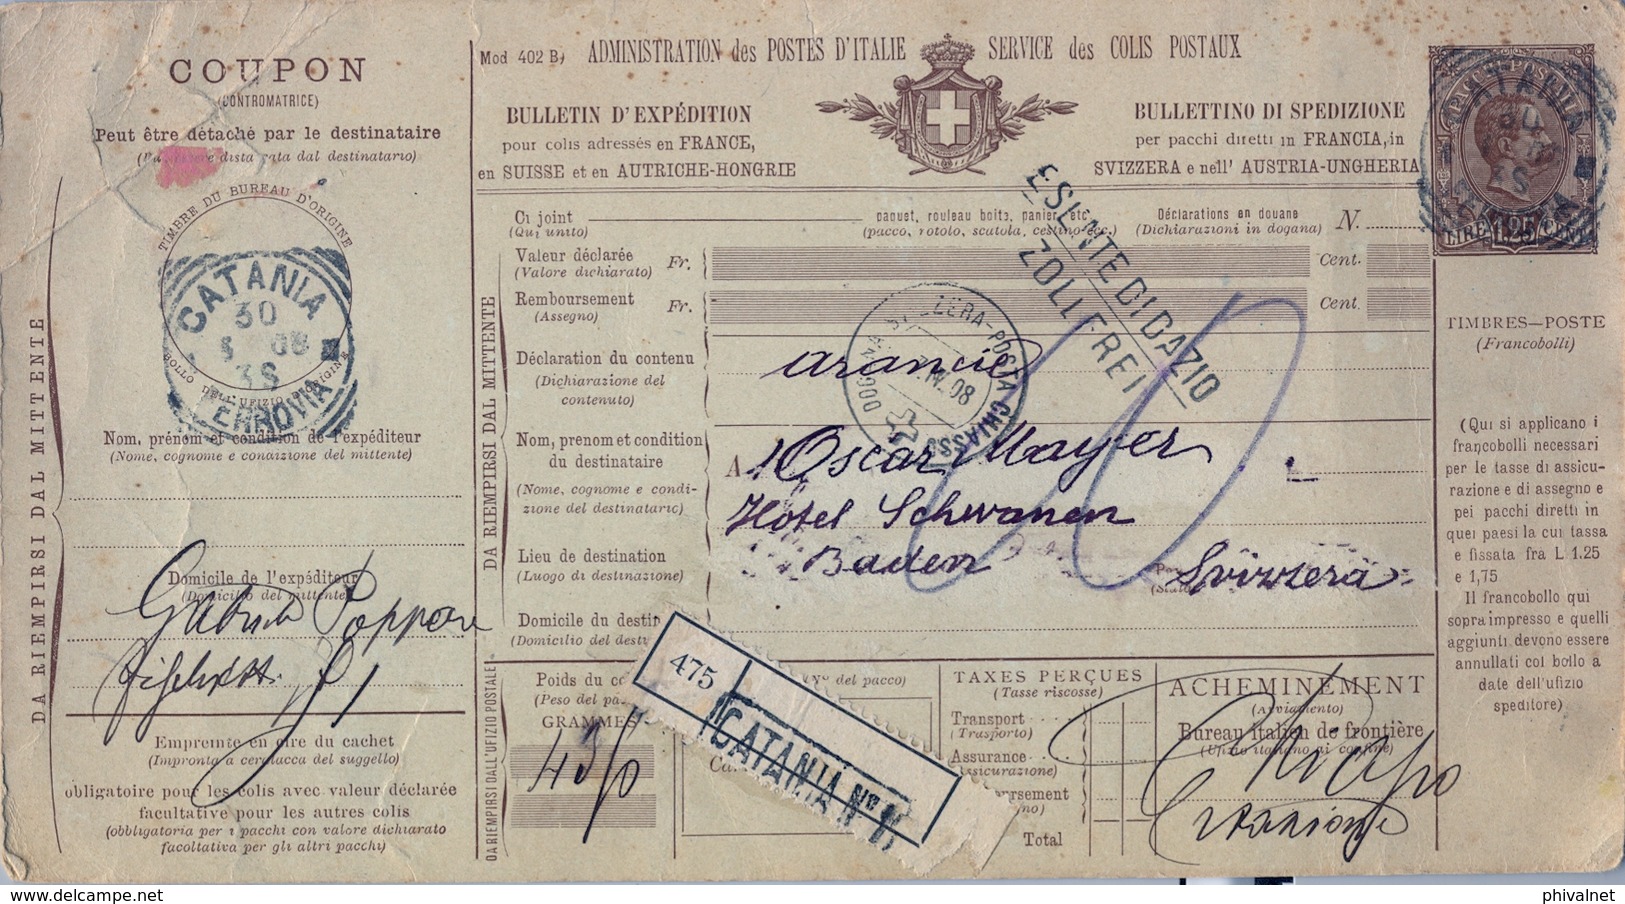 COUPON
(CONTROMATRICE)
Peut être détaché par le destinataire
dal destinatario)
TIMBRE DU BUREAU D'ORIGINE
BOLLO DELL'UFIZIO D'ORIGINE
CATANIA
30
08
3S
FERROVIA
Nom, prénom et condition de l'expéditeur
(Nome, cognome e condizione del mittente)
Domicile de l'expéditeur
(Domicilio del mittente)
Empreinte en cire du cachet
(Impronta a ceralacca del suggello)
obligatoire pour les colis avec valeur déclarée
facultative pour les autres colis
(obbligatoria per i pacchi con valore dichiarato
facoltativa per gli altri pacchi)
DA RIEMPIRSI DAL MITTENTE
Mod 402 B) ADMINISTRATION des POSTES D'ITALIE SERVICE des COLIS POSTAUX
BULLETIN D'EXPÉDITION
pour colis adressés en FRANCE,
en SUISSE et en AUTRICHE-HONGRIE
BULLETTINO DI SPEDIZIONE
per pacchi diretti in FRANCIA, in
SVIZZERA e nell' AUSTRIA-UNGHERIA
DA RIEMPIRSI DAL MITTENTE
Ci joint paquet, rouleau boite, panier, etc. Déclarations en douane
(Qui unito) (pacco, rotolo, scatola, cestino ecc.) (Dichiarazioni in dogana) N.
Valeur déclarée
(Valore dichiarato) Fr. Cent.
Remboursement
(Assegno) Fr. Cent.
ESENTE DI DAZIO
ZOLLFREI
SVIZZERA-POSTA CHIASSO
IV. 08
Déclaration du contenu
(Dichiarazione del
contenuto)
arancie
Nom, prenom et condition
du destinataire
(Nome, cognome e condi-
zione del destinatario)
A Oscar Mayer
Hôtel Schwanen
Lieu de destination
(Luogo di destinazione)
Baden Svizzera
20
Domicile du destin
(Domicilio del desti
475
CATANIA No 1
DA RIEMPIRSI DALL'UFIZIO POSTALE
Poids du co
(Peso del pa
GRAMMES
(No del pacco)
TAXES PERÇUES
(Tasse riscosse)
Transport
(Trasporto)
Assurance
(Assicurazione)
Total
ACHEMINEMENT
(Avviamento)
Bureau italien de frontière
(Ufizio italiano ai confine)
Chiasso
PACCHI POSTALI
LIRE 1.25 CENT
CATANIA
FERROVIA
TIMBRES—POSTE
(Francobolli)
(Qui si applicano i
francobolli necessari
per le tasse di assicu-
razione e di assegno e
pei pacchi diretti in
quei paesi la cui tassa
e fissata fra L 1.25
e 1,75
Il francobollo qui
sopra impresso e quelli
aggiunti devono essere
annullati col bollo a
date dell'ufizio
speditore)
phivalnet